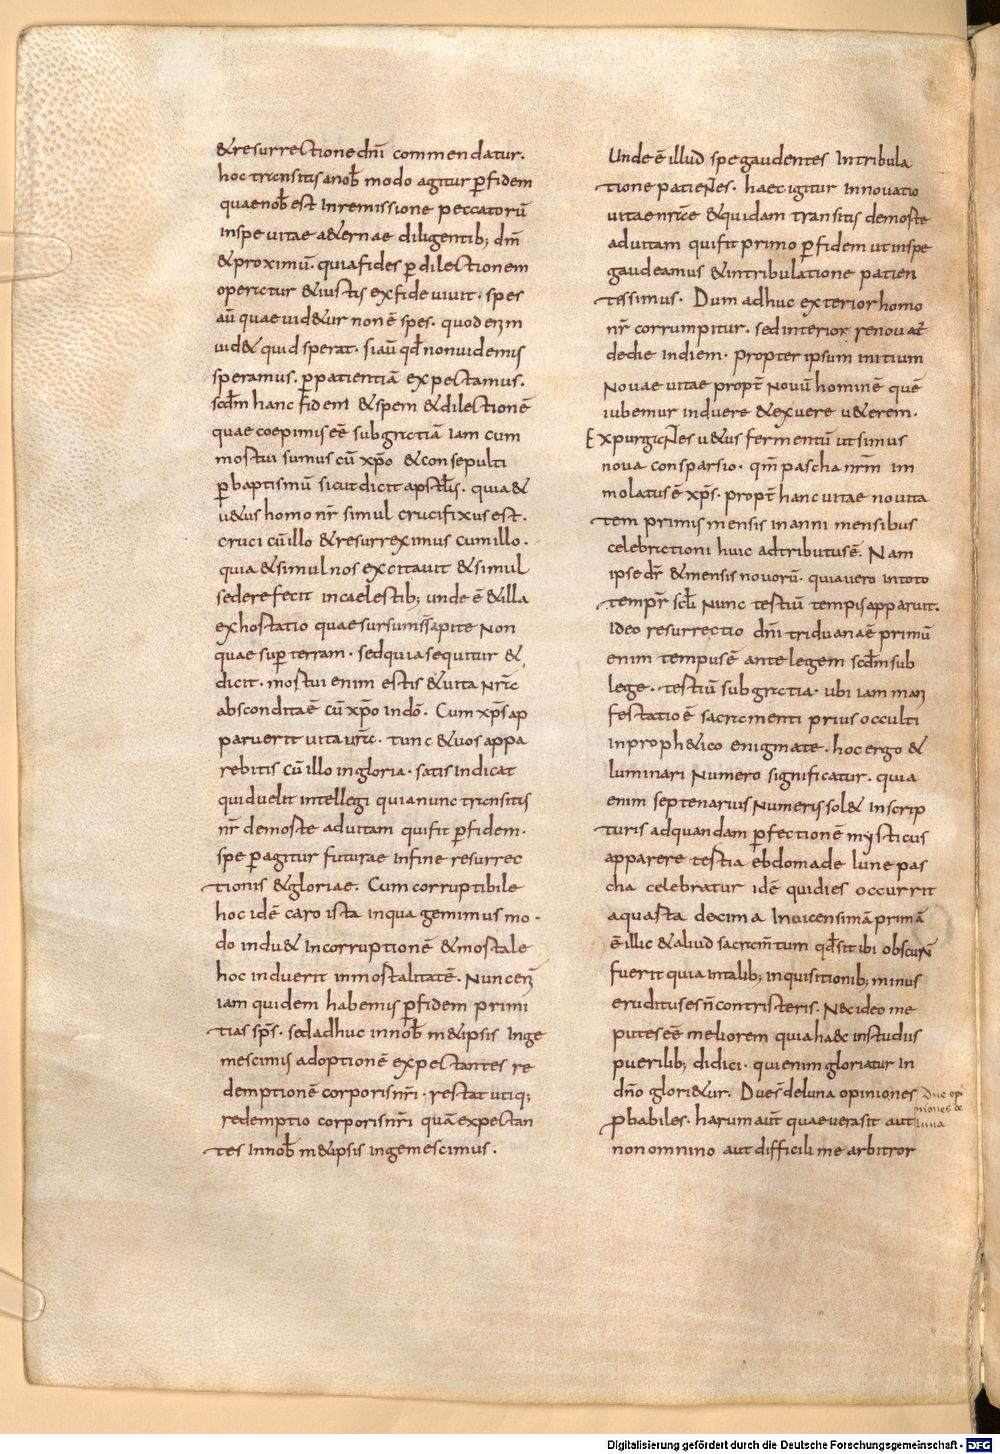 &resurrectionedn̄i commendatur.
hoc transitis anob̄ modo agitur p̄fidem
quaenob̄ est Inremissione peccatorū
inspe uitae a&ernae diligentib; dm̄
&proximū. quiafides p̄ dilectionem
operatur &iustis exfide uiuit. spes
aū quae uid&ur non ē spes. quod enim
uid& quid sperat. siaū qd̄ nonuidemis
speramus. p̄patientiā expectamus.
scdm̄ hanc fidem &spem &dilectionē
quae coepimis eē subgratiā iam cum
mortui sumus cū xp̄o &consepulti
p̄baptismū sicut dicit apstl̄s. quia&
u&us homo nr̄ simul crucifixus est.
cruci cū illo &resurreximus cum illo.
quia &simul nos excitauit &simul
sedere fecit incaelestib; unde ē &illa
exhortatio quae sursum s̄ sapite Non
quae sup̄ terram. sed quia sequitur &
dicit. mortui enim estis &uita Nrā
absconditaē cū xp̄o indō. Cum xp̄s ap
paruerit uita urā. tunc &uos appa
rebitis cū illo ingloria. satis indicat
quid uelit intellegi quia nunc transitis
nr̄ demorte aduitam quifit p̄fidem.
spe p̄agitur futurae Infine resurrec
tionis &gloriae. Cum corruptibile
hoc idē caro ista inqua gemimus mo-
do indu& Incorruptionē &mortale
hoc induerit inmortalitatē. Nunc eni
iam quidem habemis p̄fidem primi
tias sp̄s. sed adhuc innob̄ m&ipsis Inge
mescimis adoptionē expectantes re
demptionē corporis nr̄i. restat utiq;
redemptio corporis nr̄i quā expectan
tes Innob̄ m&ipsis ingemescimus.
Unde ē illud spe gaudentes Intribula
tione patieNtes. haec igitur Innouatio
uitae nrāe &quidam transitis demorte
aduitam quifit primo p̄ fidem ut inspe
gaudeamus &intribulatione patien
tissimus. Dum adhuc exterior homo
nr̄ corrumpitur. sed interior renouat̄
dedie indiem. Propter ipsum initium
Nouae uitae propt̄ Nouū hominē quē
iubemur induere &exuere u&erem.
ExpurgaNtes u&us fermentū ut simus
noua consparsio. qm̄ pascha nrm̄ im
molatus ē xp̄s. propt̄ hanc uitae nouita
tem primis mensis in anni mensibus
celebrationi huic adtributusē. Nam
ipse dr̄ &mensis nouorū. quia uero intoto
tempr̄ scl̄i Nunc tertiū tempis apparuit.
Ideo resurrectio dn̄i triduana ē primū
enim tempus ē ante legem scdm̄ sub
lege. tertiū sub gratia. ubi iam mani
festatio ē sacramenti prius occulti
inproph&ico enigmate. hoc ergo &
luminari Numero significatur. quia
enim septenarius Numeris sol& Inscrip
turis adquandam p̄fectionē mysticus
apparere tertia ebdomade lune pas
cha celebratur idē qui dies occurrit
aquarta decima Inuicensimā primā
ē illic &aliud sacram̄tum qd̄ sit ibi obscurū
fuerit quia intalib; inquisitionib; minus
eruditus es n̄ contristeris. N& ideo me
putes eē meliorem quia haec instudiis
puerilib; didici. qui enim gloriatur In
dn̄o glori&ur. Dues̄ deluna opiniones
p̄babiles. harum aūt quae uera sit aut
non omnino aut difficilime arbitror
Due opi
niones de
luna
Digitalisierung gefördert durch die Deutsche Forschungsgemeinschaft - DFG